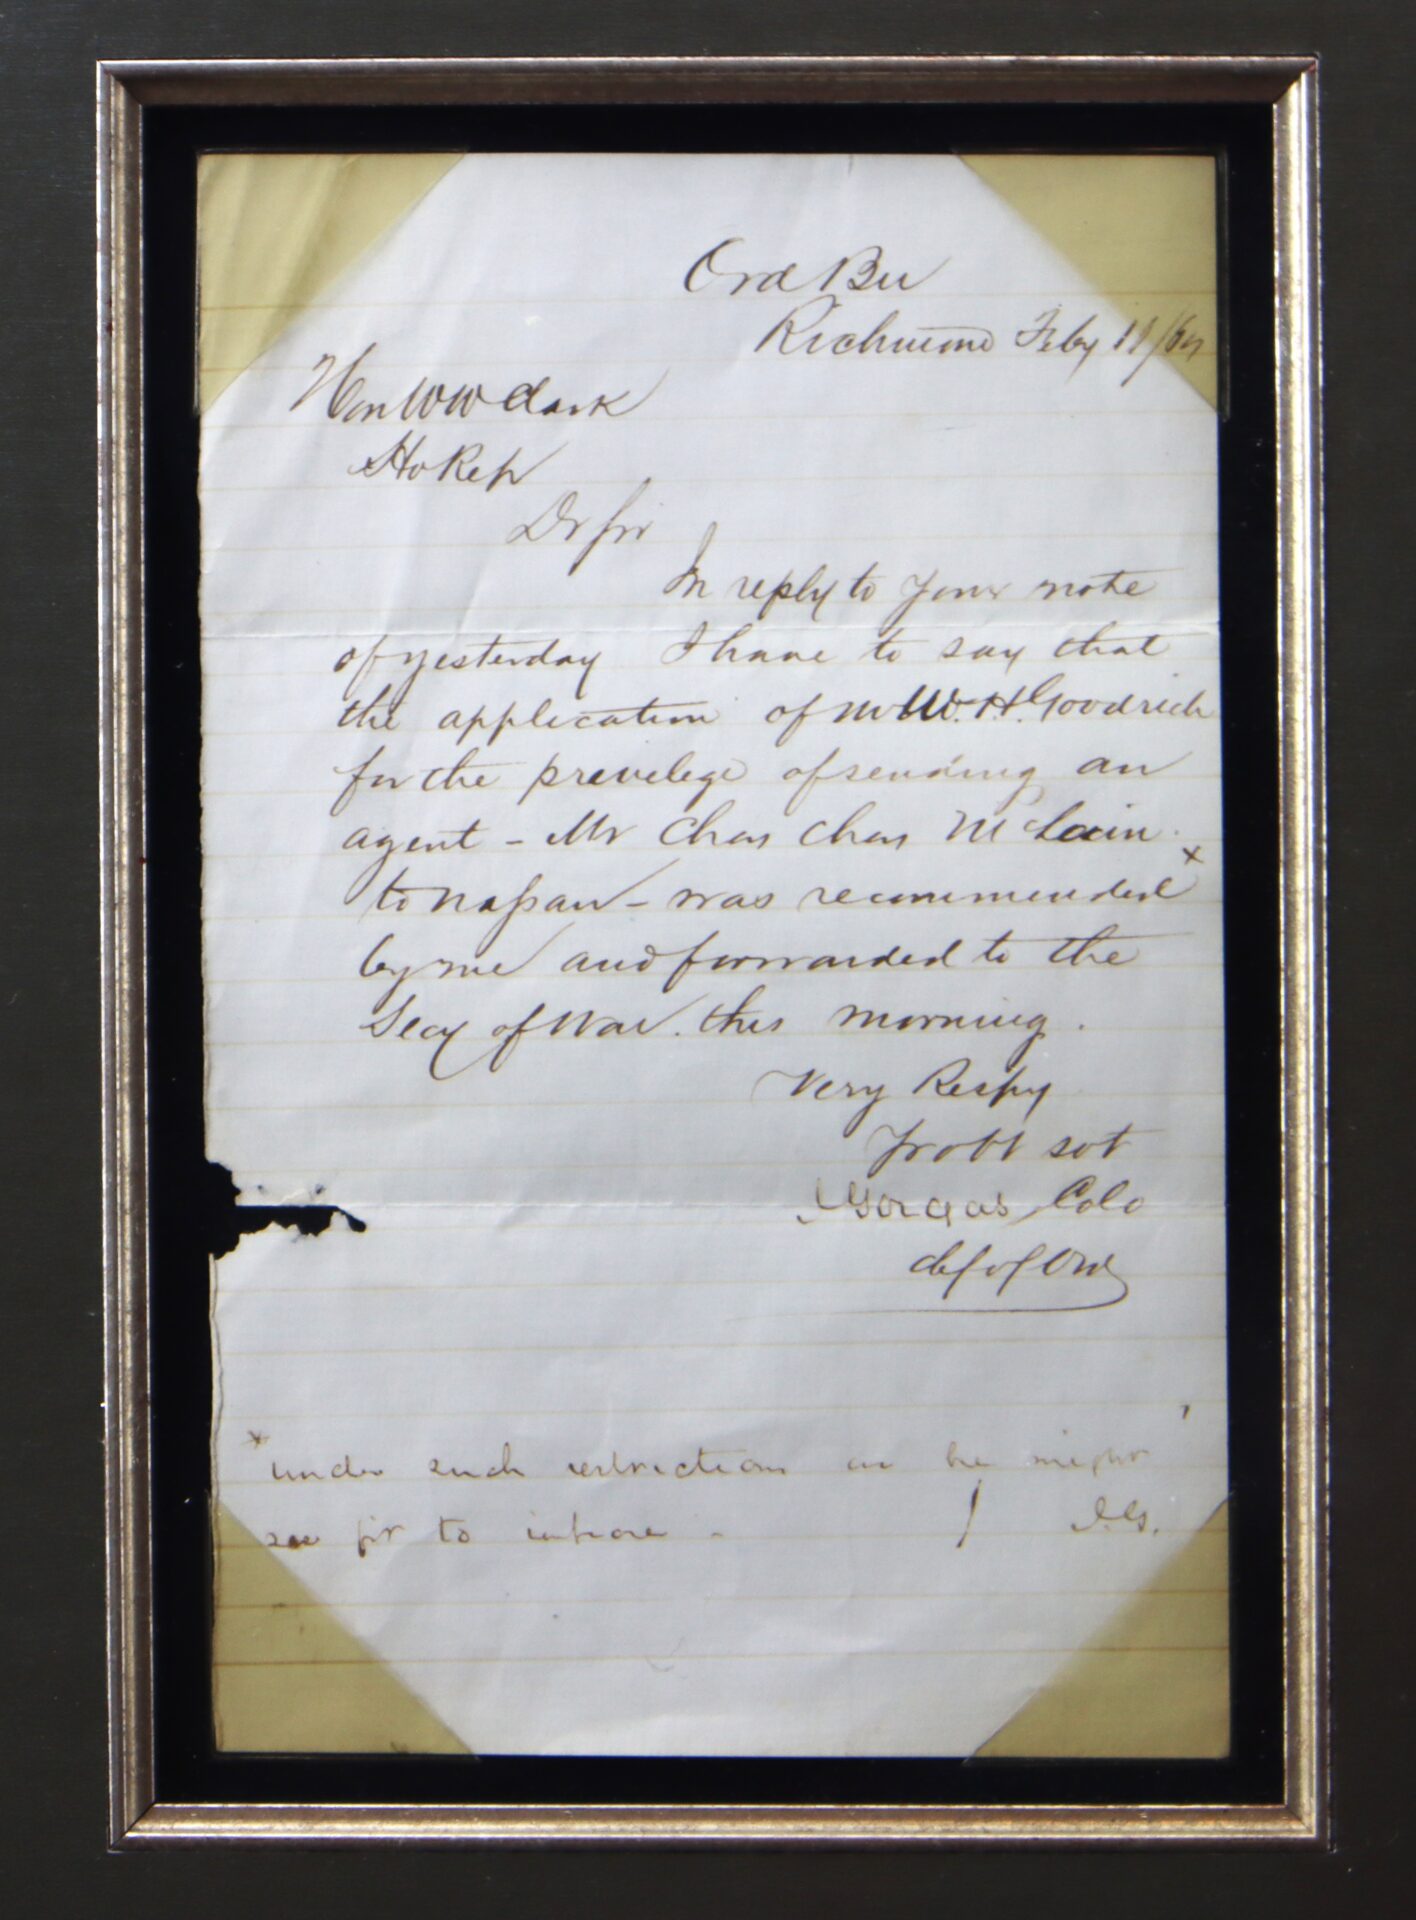 Ord Bu
Richmond Feby 11/64
Hon W W Clark
Ho Rep
Dr Sir
In reply to your note
of yesterday I have to say that
the application of Mr W. H. Goodrich
for the prevelege of sending an
agent - Mr Chas Chas McLain
to Nassau - was recommended x
by me and forwarded to the
Secy of War. this morning.
Very Respy
Yr obt svt
J Gorgas Col
chf of Ord
x under such restrictions as he might
see fit to impose - J.G.